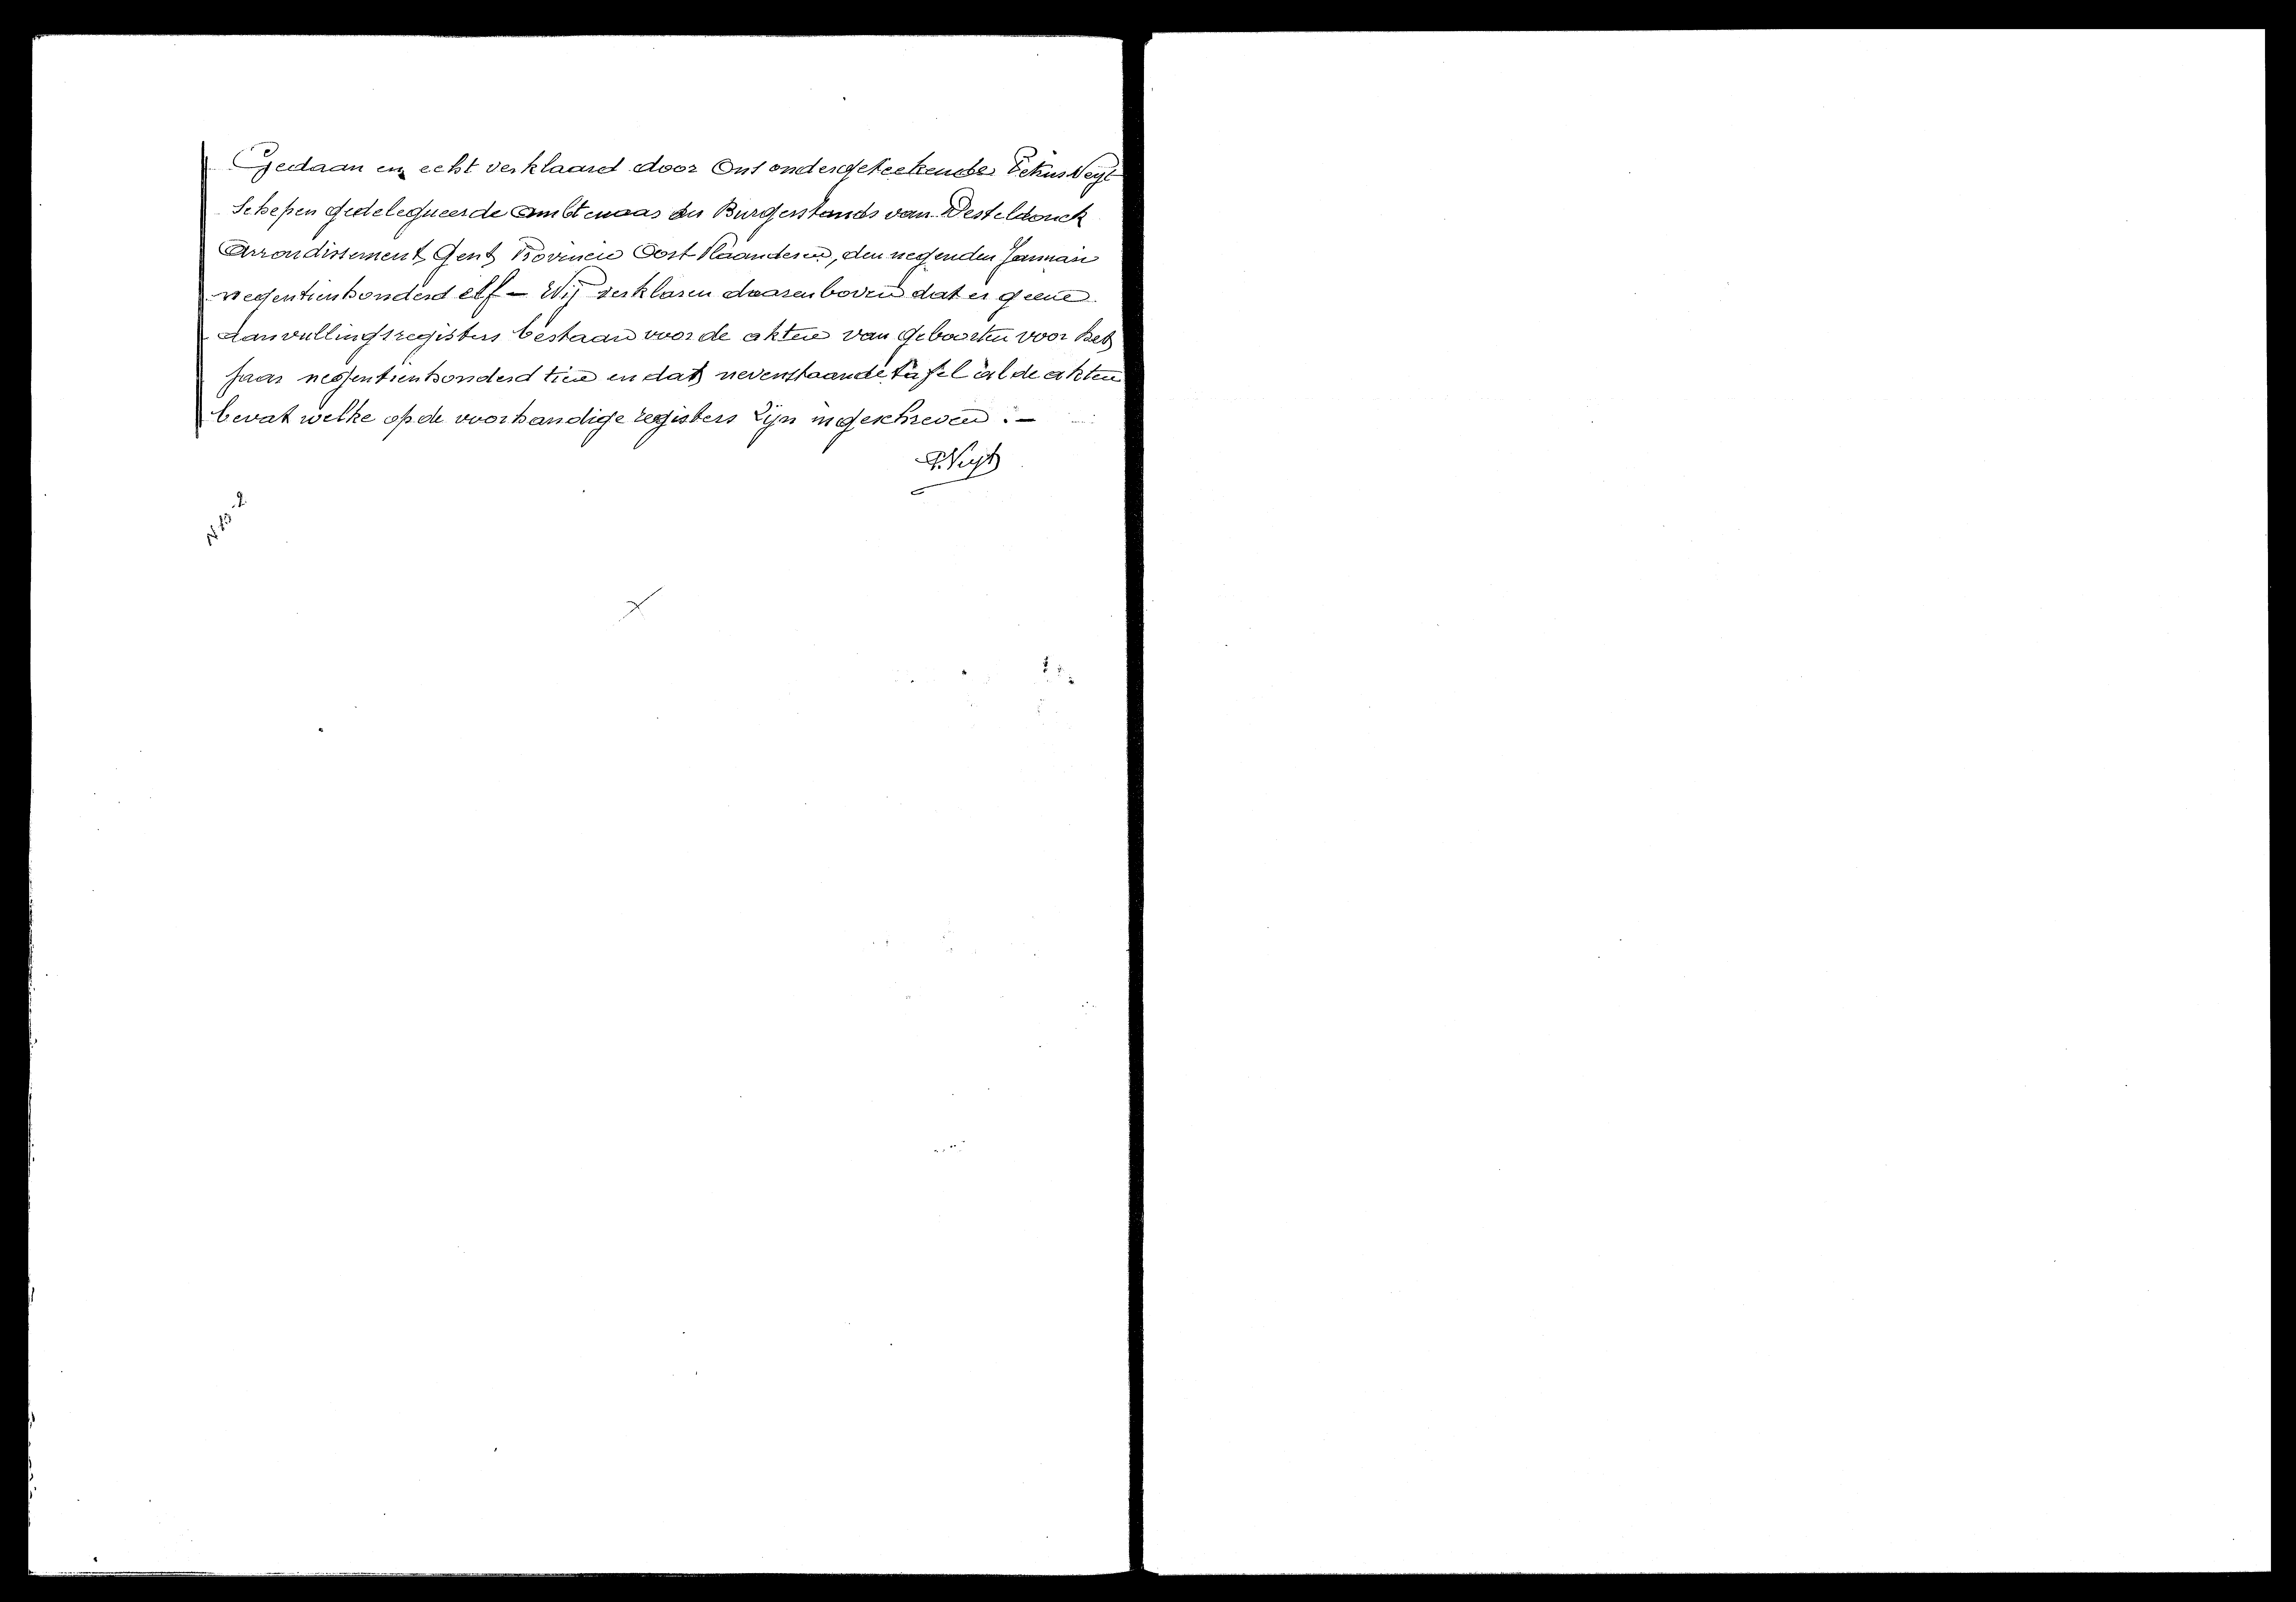 Gedaan en echt verklaard door Ons ondergeteekende Petrus Veyt
Schepen gedelegueerde ambtenaar des Burgerstands van Desteldonck
Arrondissement Gent Provincie Oost-Vlaanderen, den negenden Januari
negentienhonderd elf – Wij verklaren daarenboven dat er geene
aanvullingsregisters bestaan voor de akten van geboorten voor het
jaar negentienhonderd tien en dat nevenstaande tafel al de akten
bevat welke op de voorhandige registers zijn ingeschreven . –
P. Veyt